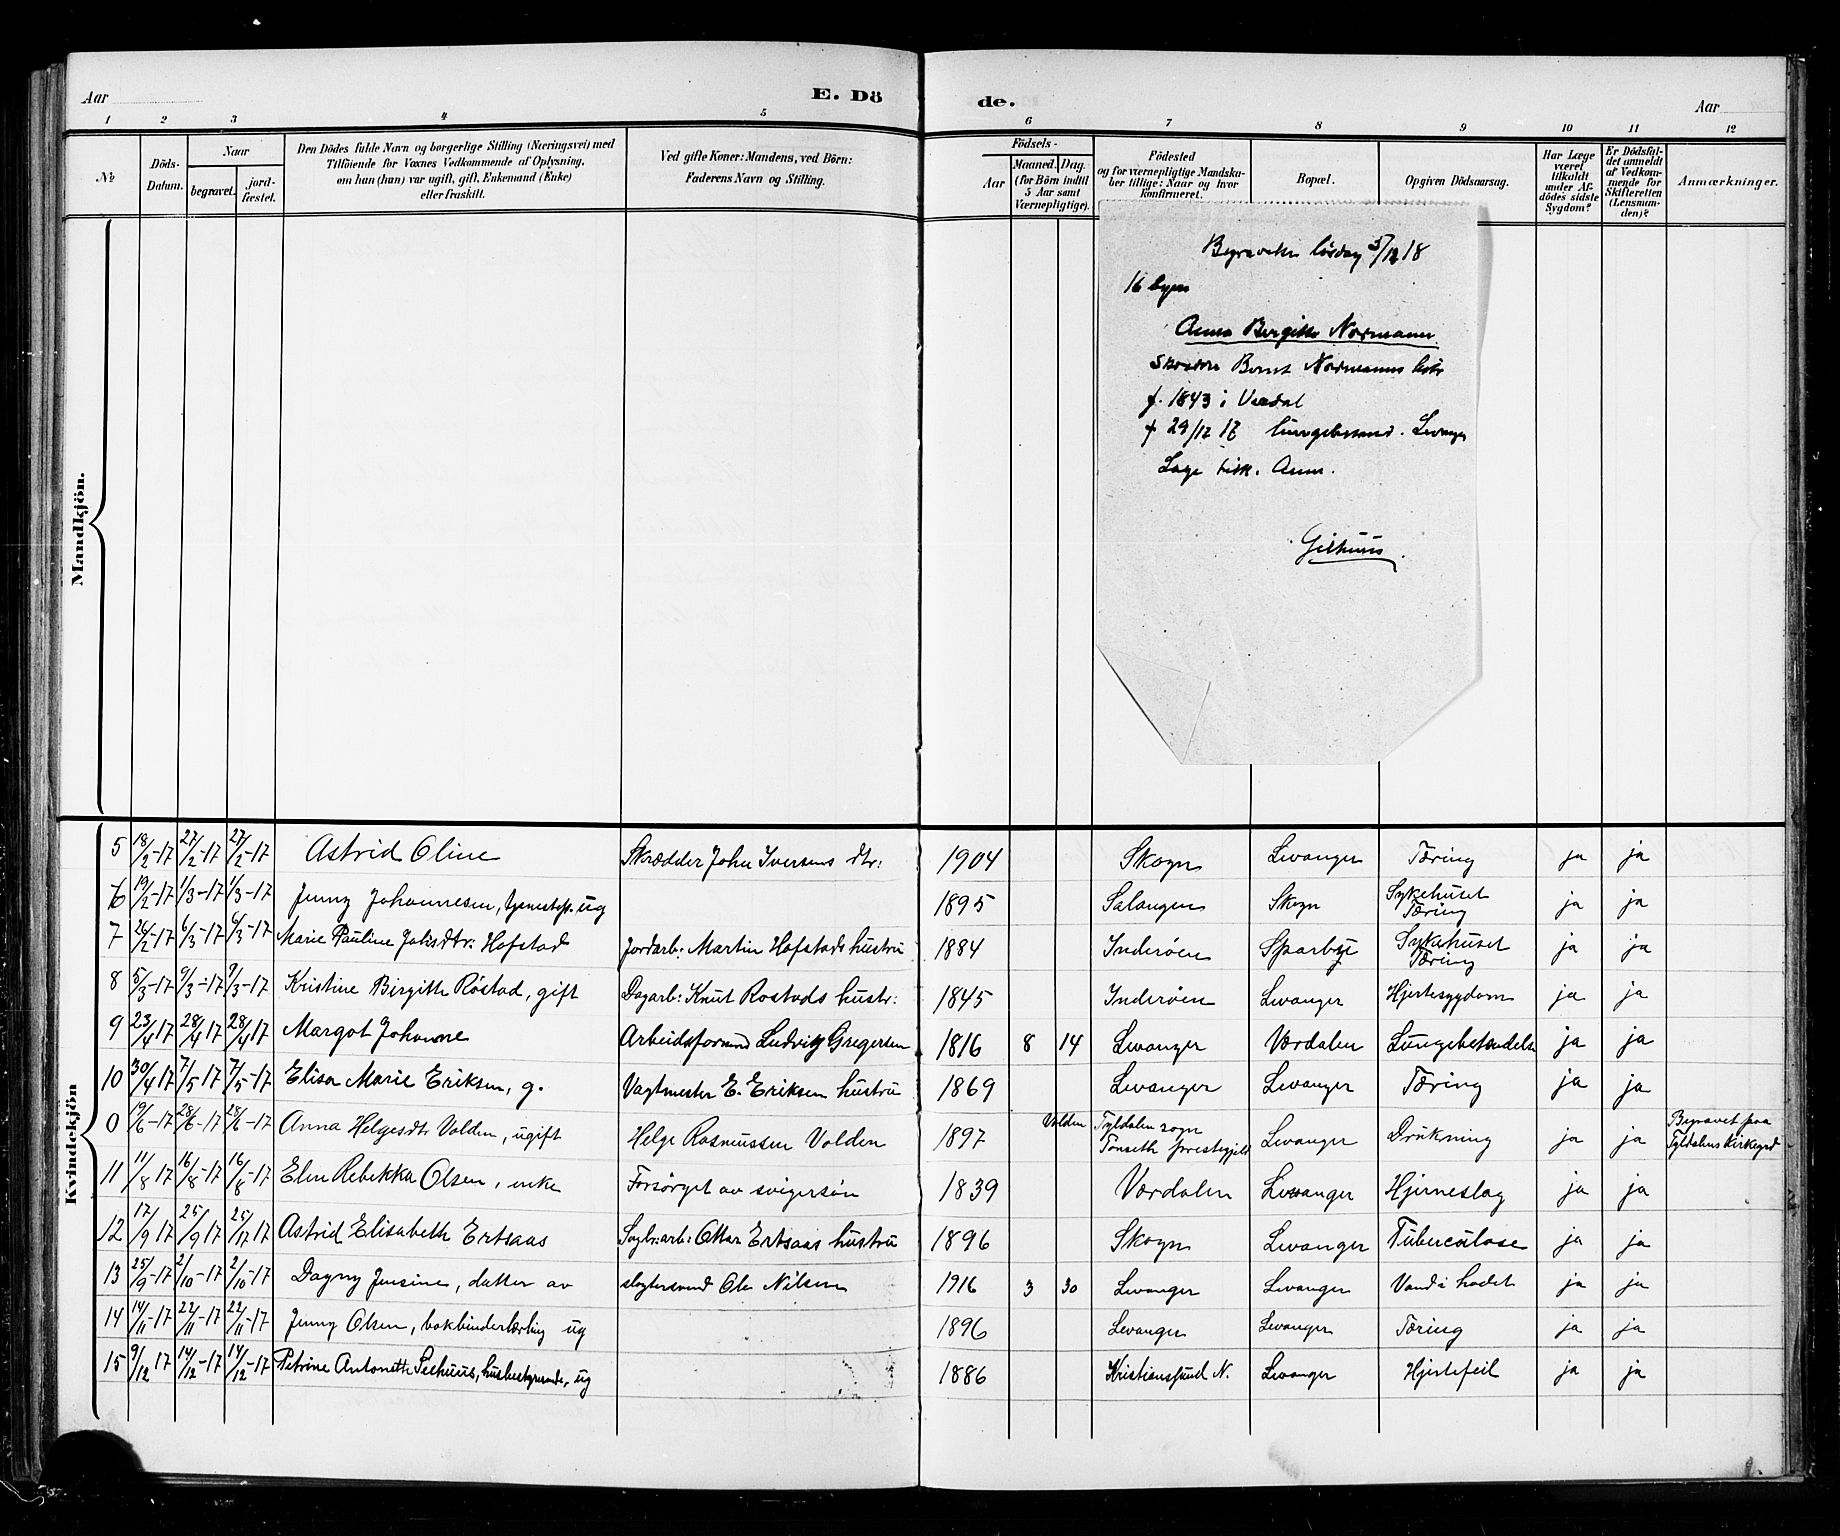 Aar
E. Dö de.
Aar
1 2 3 4 5 6 7 8 9 10 11 12
№
Döds-Datum.
Naar
begravet.
jord-fæstet.
Den Dödes fulde Navn og borgerlige Stilling (Næringsvei) med
Tilföiende for Voxnes Vedkommende af Oplysning,
om han (hun) var ugift, gift, Enkemand (Enke)
eller fraskilt.
Ved gifte Koner: Mandens, ved Börn:
Faderens Navn og Stilling.
Födsels-
Aar
Maaned. Dag.
(for Börn indtil
5 Aar samt
Værnepligtige).
Födested
og for værnepligtige Mandska-
ber tillige: Naar og hvor
konfirmeret.
Bopæl.
Opgiven Dödsaarsag.
Har Læge
været
tilkaldt
under Af-
dödes sidste
Sygdom?
Er Dödsfal-
det anmeldt
af Vedkom-
mende for
Skifteretten
(Lensman-
den)?
Anmærkninger.
Mandkjön.
lördag 5/1 18
16 byen
Anna Bergitte Normann
Bernt Normanns
f. 1843 i Verdal
† 29/12 17 Levanger
Kvindekjön
5 18/2-17 27/2-17 27/2-17 Astrid Oline Skrædder John Iversens dtr: 1904 Skogn Levanger Tæring ja ja
6 19/2-17 1/3-17 1/3-17 Jenny Johannesen, ug 1895 Salangen Skogn Sykehuset Tæring ja ja
7 26/2-17 6/3-17 6/3-17 Marie Pauline Johsdtr: Hofstad Jordarb: Martin Hofstads hustru 1884 Inderøen Sparbye Sykehuset Tæring ja ja
8 5/3-17 9/3-17 9/3-17 Kristine Birgitte Röstad, gift Dagarb: Knut Rostads hustr: 1845 Inderøen Levanger Hjertesygdom ja ja
9 23/4 17 28/4 17 28/4 17 Margot Johanne Arbeidsformd Ludvig Gregersen 1816 8 14 Levanger Værdalen Lungebetændelse ja ja
10 30/4 17 7/5-17 7/5-17 Elisa Marie Eriksen, g. Vagtmester E. Eriksen hustru 1869 Levanger Levanger Tæring ja ja
0 19/6-17 28/6-17 28/6-17 Anna Helgesdtr Volden, ugift Helge Rasmussen Volden 1897 Volden Tyldalen sogn Tønseth prestegjeld Levanger Drukning ja ja Begravet paa Tyldalens Kirkegrd
11 11/8 17 16/8-17 16/8-17 Elen Rebekka Olsen, enke Forsörget av svigersön 1839 Værdalen Levanger Hjerneslag ja ja
12 17/9 17 25/9 17 25/ 17 Astrid Elisabeth Ertsaas Sagbr:arb: Ottar Ertsaas hustru 1896 Skogn Levanger Tuberculose ja ja
13 25/9-17 2/10-17 2/10-17 Dagny Jensine, datter av slagtersvend Ole Nilsen 1916 3 30 Levanger Levanger Vand i hodet ja ja
14 14/11-17 22/11-17 22/11-17 Jenny Olsen, bokbinderlærling ug 1896 Levanger Levanger Tæring ja ja
15 9/12 17 14/12-17 14/12-17 Petrine Antonette husbestyrerinde, ug 1886 Kristianssund N. Levanger Hjertefeil ja ja